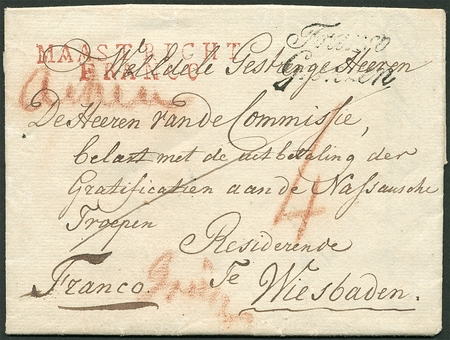 MAASTRICHT
FRANCO
Franco
Grenzen
WelEdele Gestrenge Heeren
De Heeren van de Commissie,
belast met de uitbetaling der
Gratificatien aan de Nassausche
Troepen
4
Residerende
Te
Franco.
Wiesbaden.